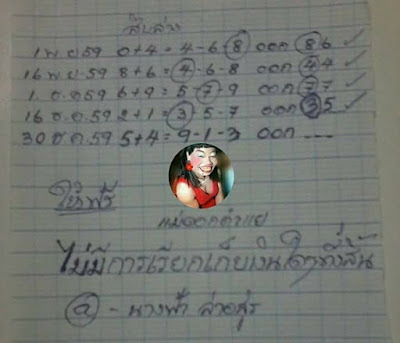 สิบล่าง
1 พ.ย 59 0+4 = 4-6-8 ออก 86 ✓
16 พ.ย 59 8+6 = 4-6-8 ออก 44 ✓
1. ธ.ค 59 6+9 = 5-7-9 ออก 77 ✓
16 ธ.ค 59 2+1 = 3-5-7 ออก 35 ✓
30 ธ.ค. 59 5+4 = 9-1-3 ออก ----
ให้ฟรี
แม่ดอกลำแย
ไม่มีการเรียกเก็บเงินใดๆทั้งสิ้น
@ - นางฟ้า